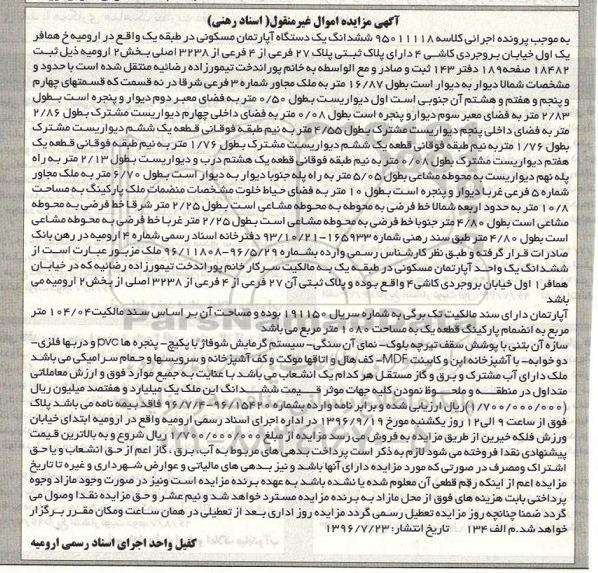 آگهی مزایده اموال غیرمنقول( اسناد رهنی)
به موجب پرونده اجرائی کلاسه ۹۵۰۱۱۱۱۸ ششدانگ یک دستگاه آپارتمان مسکونی در طبقه یک واقع در ارومیه خ همافر
یک اول خیابان بروجردی کاشی ۴ دارای پلاک ثبتی پلاک ۲۷ فرعی از ۴ فرعی از ۳۲۳۸ اصلی بخش۲ ارومیه ذیل ثبت
۱۸۴۸۲ صفحه۱۸۹ دفتر ۱۴۳ ثبت و صادر و مع الواسطه به خانم پوراندخت تیمورزاده رضائیه منتقل شده است با حدود و
مشخصات شمالا دیوار به دیوار است بطول ۱۶/۸۷ متر به ملک مجاور شماره ۳ فرعی شرقا در نه قسمت که قسمتهای چهارم
و پنجم و هفتم و هشتم آن جنوبی است اول دیواریست بطول ۰/۵۰ متر به فضای معبر دوم دیوار و پنجره است بطول
۲/۸۳ متر به فضای معبر سوم دیوار و پنجره است بطول ۰/۰۸ متر به فضای داخلی چهارم دیواریست مشترک بطول ۲/۸۶
متر به فضای داخلی پنجم دیواریست مشترک بطول ۴/۵۵ متر به نیم طبقه فوقانی قطعه یک ششم دیواریست مشترک
بطول ۱/۷۶ متر به نیم طبقه فوقانی قطعه یک ششم دیواریست مشترک بطول ۱/۷۶ متر به نیم طبقه فوقانی قطعه یک
هفتم دیواریست مشترک بطول ۰/۰۸ متر به نیم طبقه فوقانی قطعه یک هشتم درب و دیواریست بطول ۲/۱۳ متر به راه
پله نهم دیواریست به محوطه مشاعی بطول ۵/۰۵ متر به راه پله جنوبا دیوار به دیوار است بطول ۶/۷۰ متر به ملک مجاور
شماره ۵ فرعی غربا دیوار و پنجره است بطول ۱۰ متر به فضای حیاط خلوت مشخصات منضمات ملک پارکینگ به مساحت
۱۰/۸ متر به حدود اربعه شمالا خط فرضی به محوطه مشاعی است بطول ۲/۲۵ متر شرقا خط فرضی به محوطه
مشاعی است بطول ۴/۸۰ متر جنوبا خط فرضی به محوطه مشاعی است بطول ۲/۲۵ متر غربا خط فرضی به محوطه مشاعی
است بطول ۴/۸۰ متر طبق سند رهنی شماره ۱۶۵۹۳۳-۹۳/۱۰/۲۱ دفترخانه اسناد رسمی شماره ۴ ارومیه در رهن بانک
صادرات قرار گرفته و طبق نظر کارشناس رسمی وارده بشماره ۹۶/۵/۲۹-۹۶/۱۱۸۰۸ ملک مزبور عبارت است از
ششدانگ یک واحد آپارتمان مسکونی در طبقه یک به مالکیت سرکار خانم پوراندخت تیمورزاده رضائیه که در خیابان
همافر۱ اول خیابان بروجردی کاشی۴ واقع بوده و پلاک ثبتی آن ۲۷ فرعی از ۴ فرعی از ۳۲۳۸ اصلی از بخش۲ ارومیه می
باشد
آپارتمان دارای سند مالکیت تک برگی به شماره سریال ۱۹۱۱۵۰ بوده و مساحت آن بر اساس سند مالکیت۱۰۴/۰۴ متر
مربع به انضمام پارکینگ قطعه یک به مساحت ۱۰۸۰ متر مربع می باشد
سازه آن بتنی با پوشش سقف تیرچه بلوک- نمای آن سنگی- سیستم گرمایش شوفاژ با پکیج- پنجره ها pvc و دربها فلزی-
دو خوابه- با آشپزخانه اپن و کابینت MDF- کف هال و اتاقها موکت و کف آشپزخانه و سرویسها و حمام سرامیکی می باشد
ملک دارای آب مشترک و برق و گاز مستقل هر کدام یک انشعاب می باشد با عنایت به جمیع موارد فوق و ارزش معاملاتی
متداول در منطقه و ملحوظ نمودن کلیه جهات موثر قیمت ششدانگ این ملک یک میلیارد و هفتصد میلیون ریال
(۱/۷۰۰/۰۰۰/۰۰۰)ریال ارزیابی شده و برابر نامه وارده بشماره ۹۶/۱۵۴۲۰-۹۶/۷/۲ فاقد بیمه نامه می باشد پلاک
فوق از ساعت ۹ الی۱۲ روز یکشنبه مورخ ۱۳۹۶/۷/۱۹ در اداره اجرای اسناد رسمی ارومیه واقع در ارومیه ابتدای خیابان
ورزش فلکه خیرین از طریق مزایده به فروش می رسد مزایده از مبلغ ۱/۷۰۰/۰۰۰/۰۰۰ ریال شروع و به بالاترین قیمت
پیشنهادی نقدا فروخته می شود لازم به ذکر است پرداخت بدهی های مربوط به آب، برق، گاز اعم از حق انشعاب و یا حق
اشتراک ومصرف در صورتی که مورد مزایده دارای آنها باشد و نیز بدهی های مالیاتی و عوارض شهرداری و غیره تا تاریخ
مزایده اعم از اینکه رقم قطعی آن معلوم شده یا نشده باشد به عهده برنده مزایده است ونیز در صورت وجود مازاد وجوه
پرداختی بابت هزینه های فوق از محل مازاد به برنده مزایده مسترد خواهد شد و نیم عشر و حق مزایده نقدا وصول می
گردد ضمنا چنانچه روز مزایده تعطیل رسمی گردد مزایده روز اداری بعد از تعطیلی در همان ساعت ومکان مقرر برگزار
خواهد شد.م الف ۱۳۴ تاریخ انتشار: ۱۳۹۶/۷/۲۳
کفیل واحد اجرای اسناد رسمی ارومیه